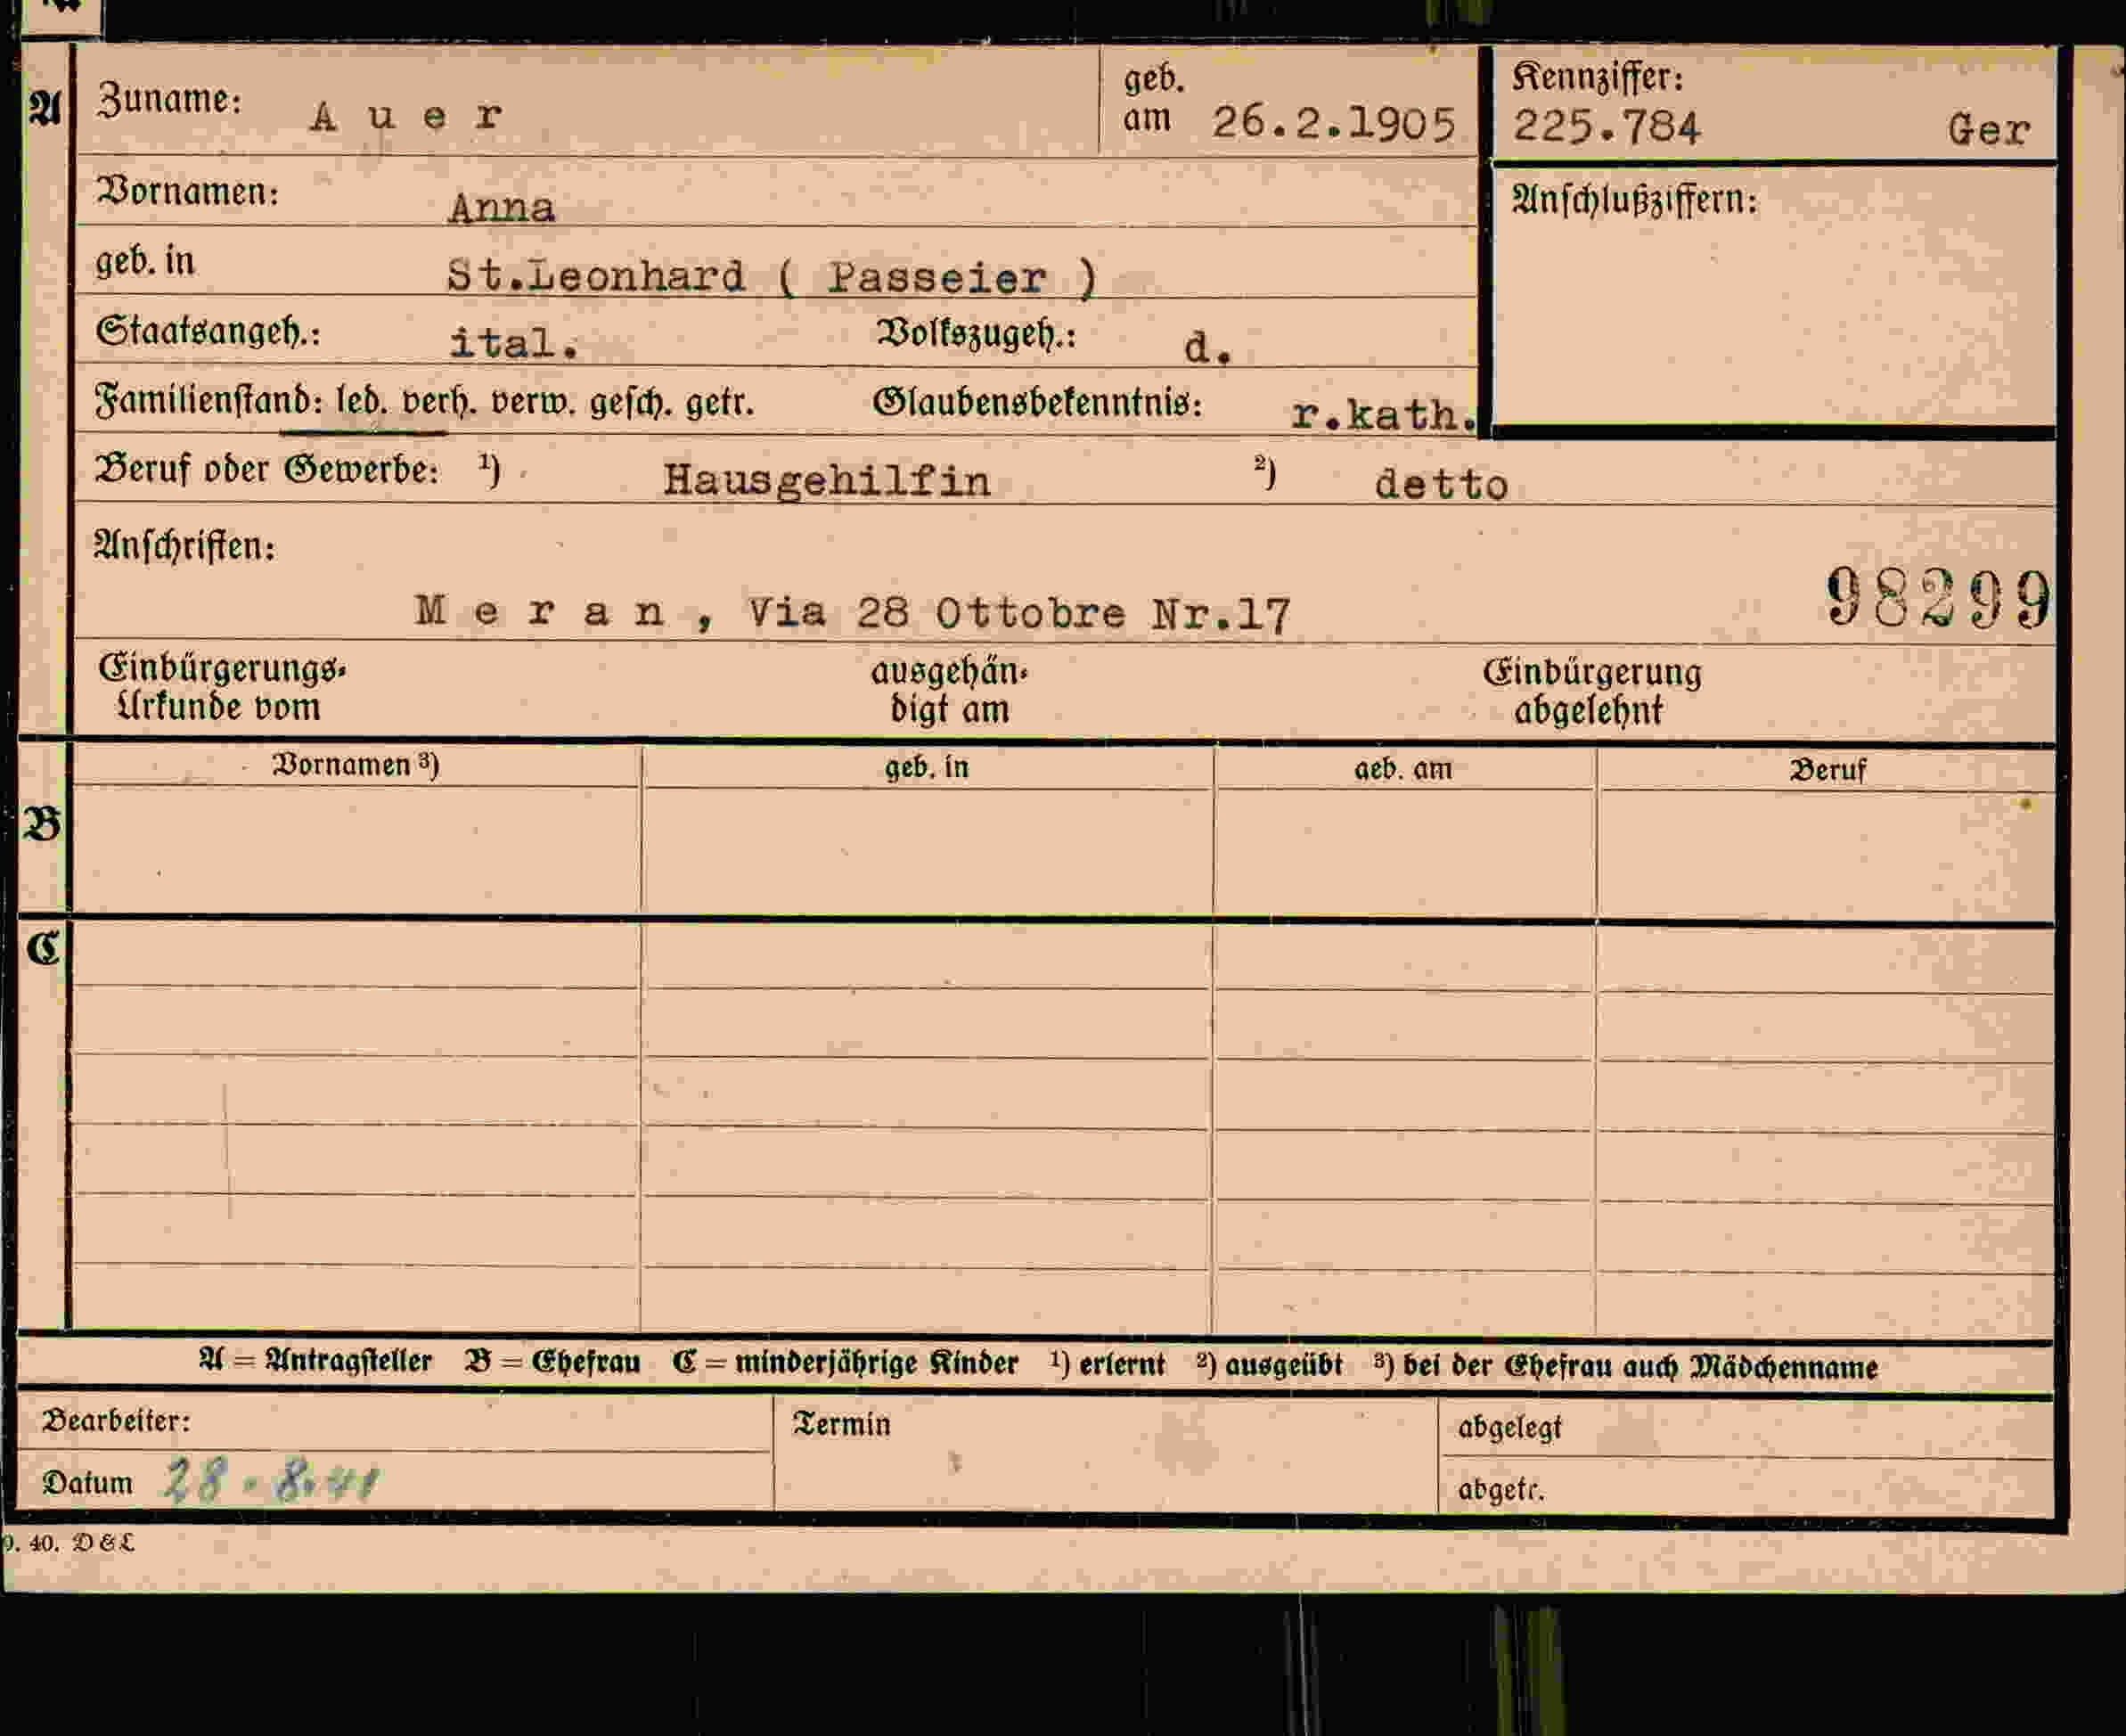 A Zuname: Auer geb. am 26.2.1905 Kennziffer: 225.784 Ger
Vornamen: Anna Anschlußziffern:
geb. in St.Leonhard ( Passeier )
Staatsangeh.: ital. Volkszugeh.: d.
Familienstand: led. verh. verw. gesch. getr. Glaubensbekenntnis: r.kath.
Beruf oder Gewerbe: ¹) Hausgehilfin ²) detto
Anschriften:
Meran, Via 28 Ottobre Nr.17 98299
Einbürgerungs- ausgehän- Einbürgerung
Urkunde vom digt am abgelehnt
Vornamen ³) geb. in geb. am Beruf
B
C
A = Antragsteller B = Ehefrau C = minderjährige Kinder ¹) erlernt ²) ausgeübt ³) bei der Ehefrau auch Mädchenname
Bearbeiter: Termin abgelegt
Datum 28.8.41 abgetr.
40. D & L